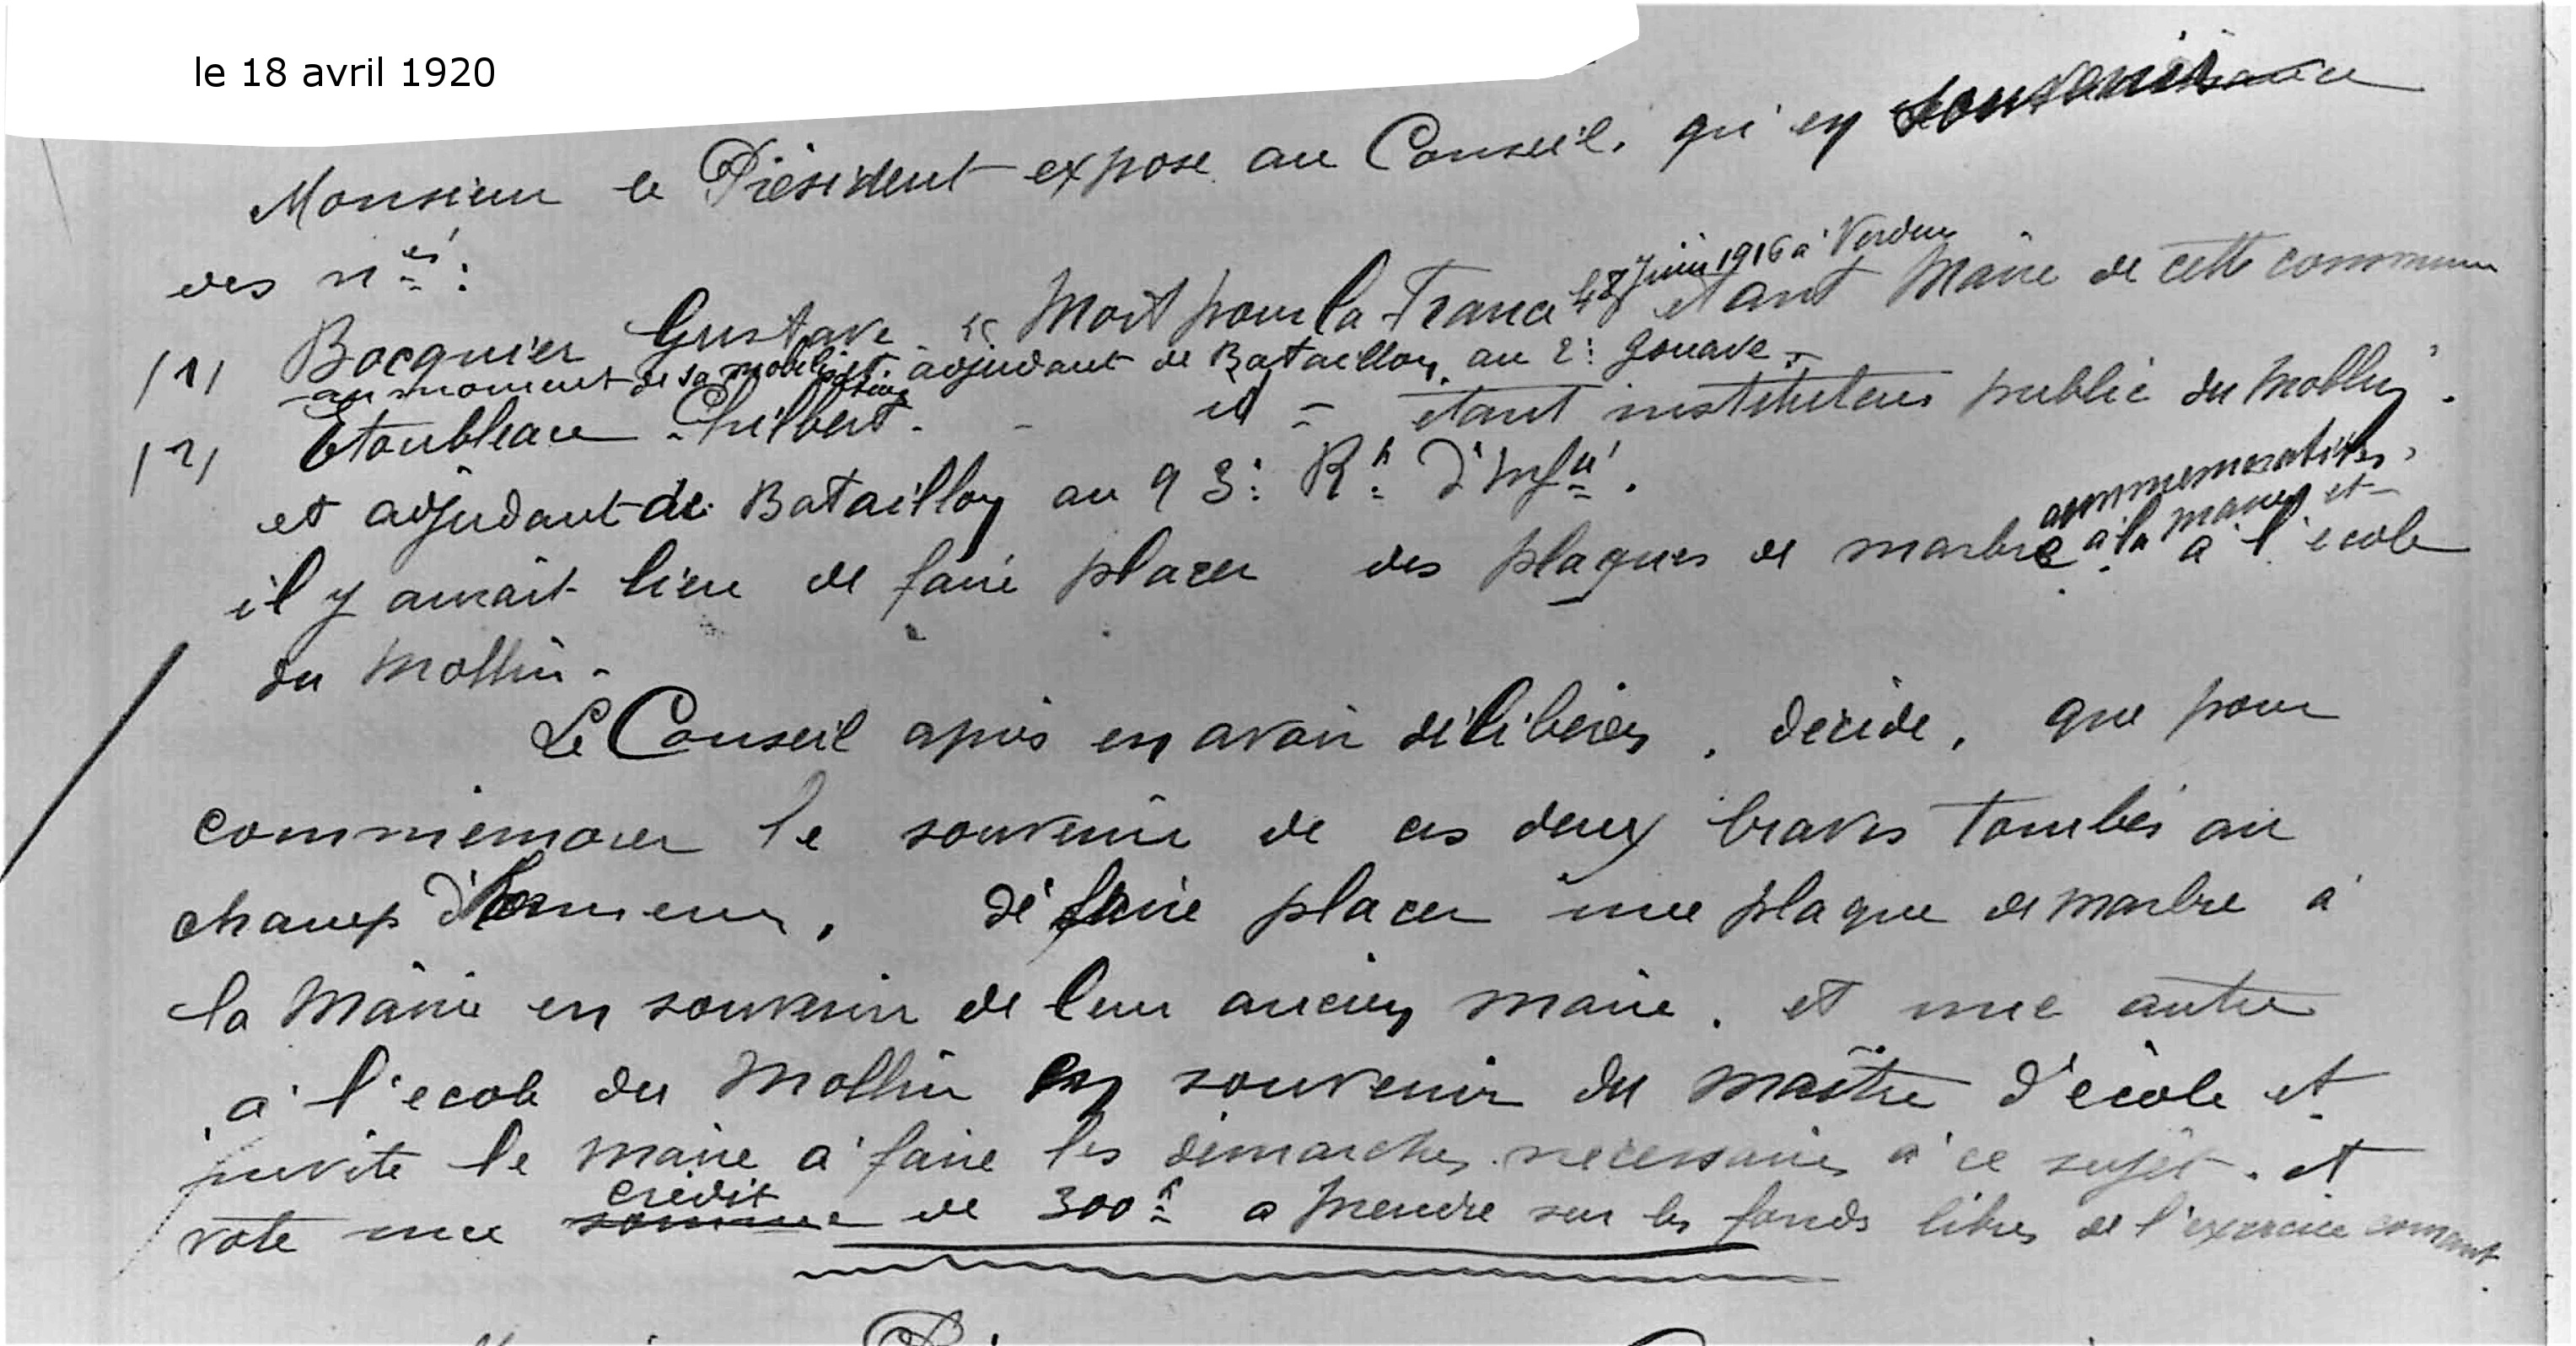 le 18 avril 1920
Monsieur le Président expose au Conseil, qu'en souvenir
des n és :
le 8 Juin 1916 à Verdun
/1/ Bocquier Gustave " Mort pour la France étant Maire de cette commune
au moment de sa mobilisation adjudant de Bataillon au 2e Zouave -
/2/ Etoubleau Philbert - - id - étant instituteur public du Mollin ".
et adjudant de Bataillon au 93e Rt d'Infie.
commemoratives
à la mairie et
il y aurait lieu de faire placer des plaques de marbre à l'ecole
du Mollin -
Le Conseil après en avoir délibérer, décide, que pour
commémorer le souvenir de ces deux braves tombés au
champ d'honneur, de faire placer une plaque de marbre à
la Mairie en souvenir de leur ancien maire. et une autre
à l'ecole du Mollin en souvenir du maître d'école et
invite le maire à faire les démarches necessaires à ce sujet. et
crédit
vote une somme de 300 f a prendre sur les fonds libres de l'exercice courant.